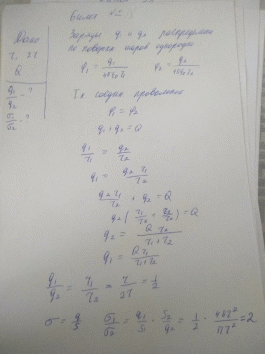 Билет №
Дано
r, 2r
Q
q₁/q₂ - ?
σ₁/σ₂ - ?
Заряды q₁ и q₂ распределены
по поверх. шаров
φ₁ = q₁/4πε₀r₁ φ₂ = q₂/4πε₀r₂
Тк соедин. проволокой
φ₁ = φ₂
q₁ + q₂ = Q
q₁/r₁ = q₂/r₂
q₁ = q₂ r₁/r₂
q₂ r₁/r₂ + q₂ = Q
q₂ = Q r₂/r₁ + r₂
q₁ = Q r₁/r₁ + r₂
q₁/q₂ = r₁/r₂ = r/2r = 1/2
σ = q/S σ₁/σ₂ = q₁/S₁ · S₂/q₂ = 1/2 · = 2